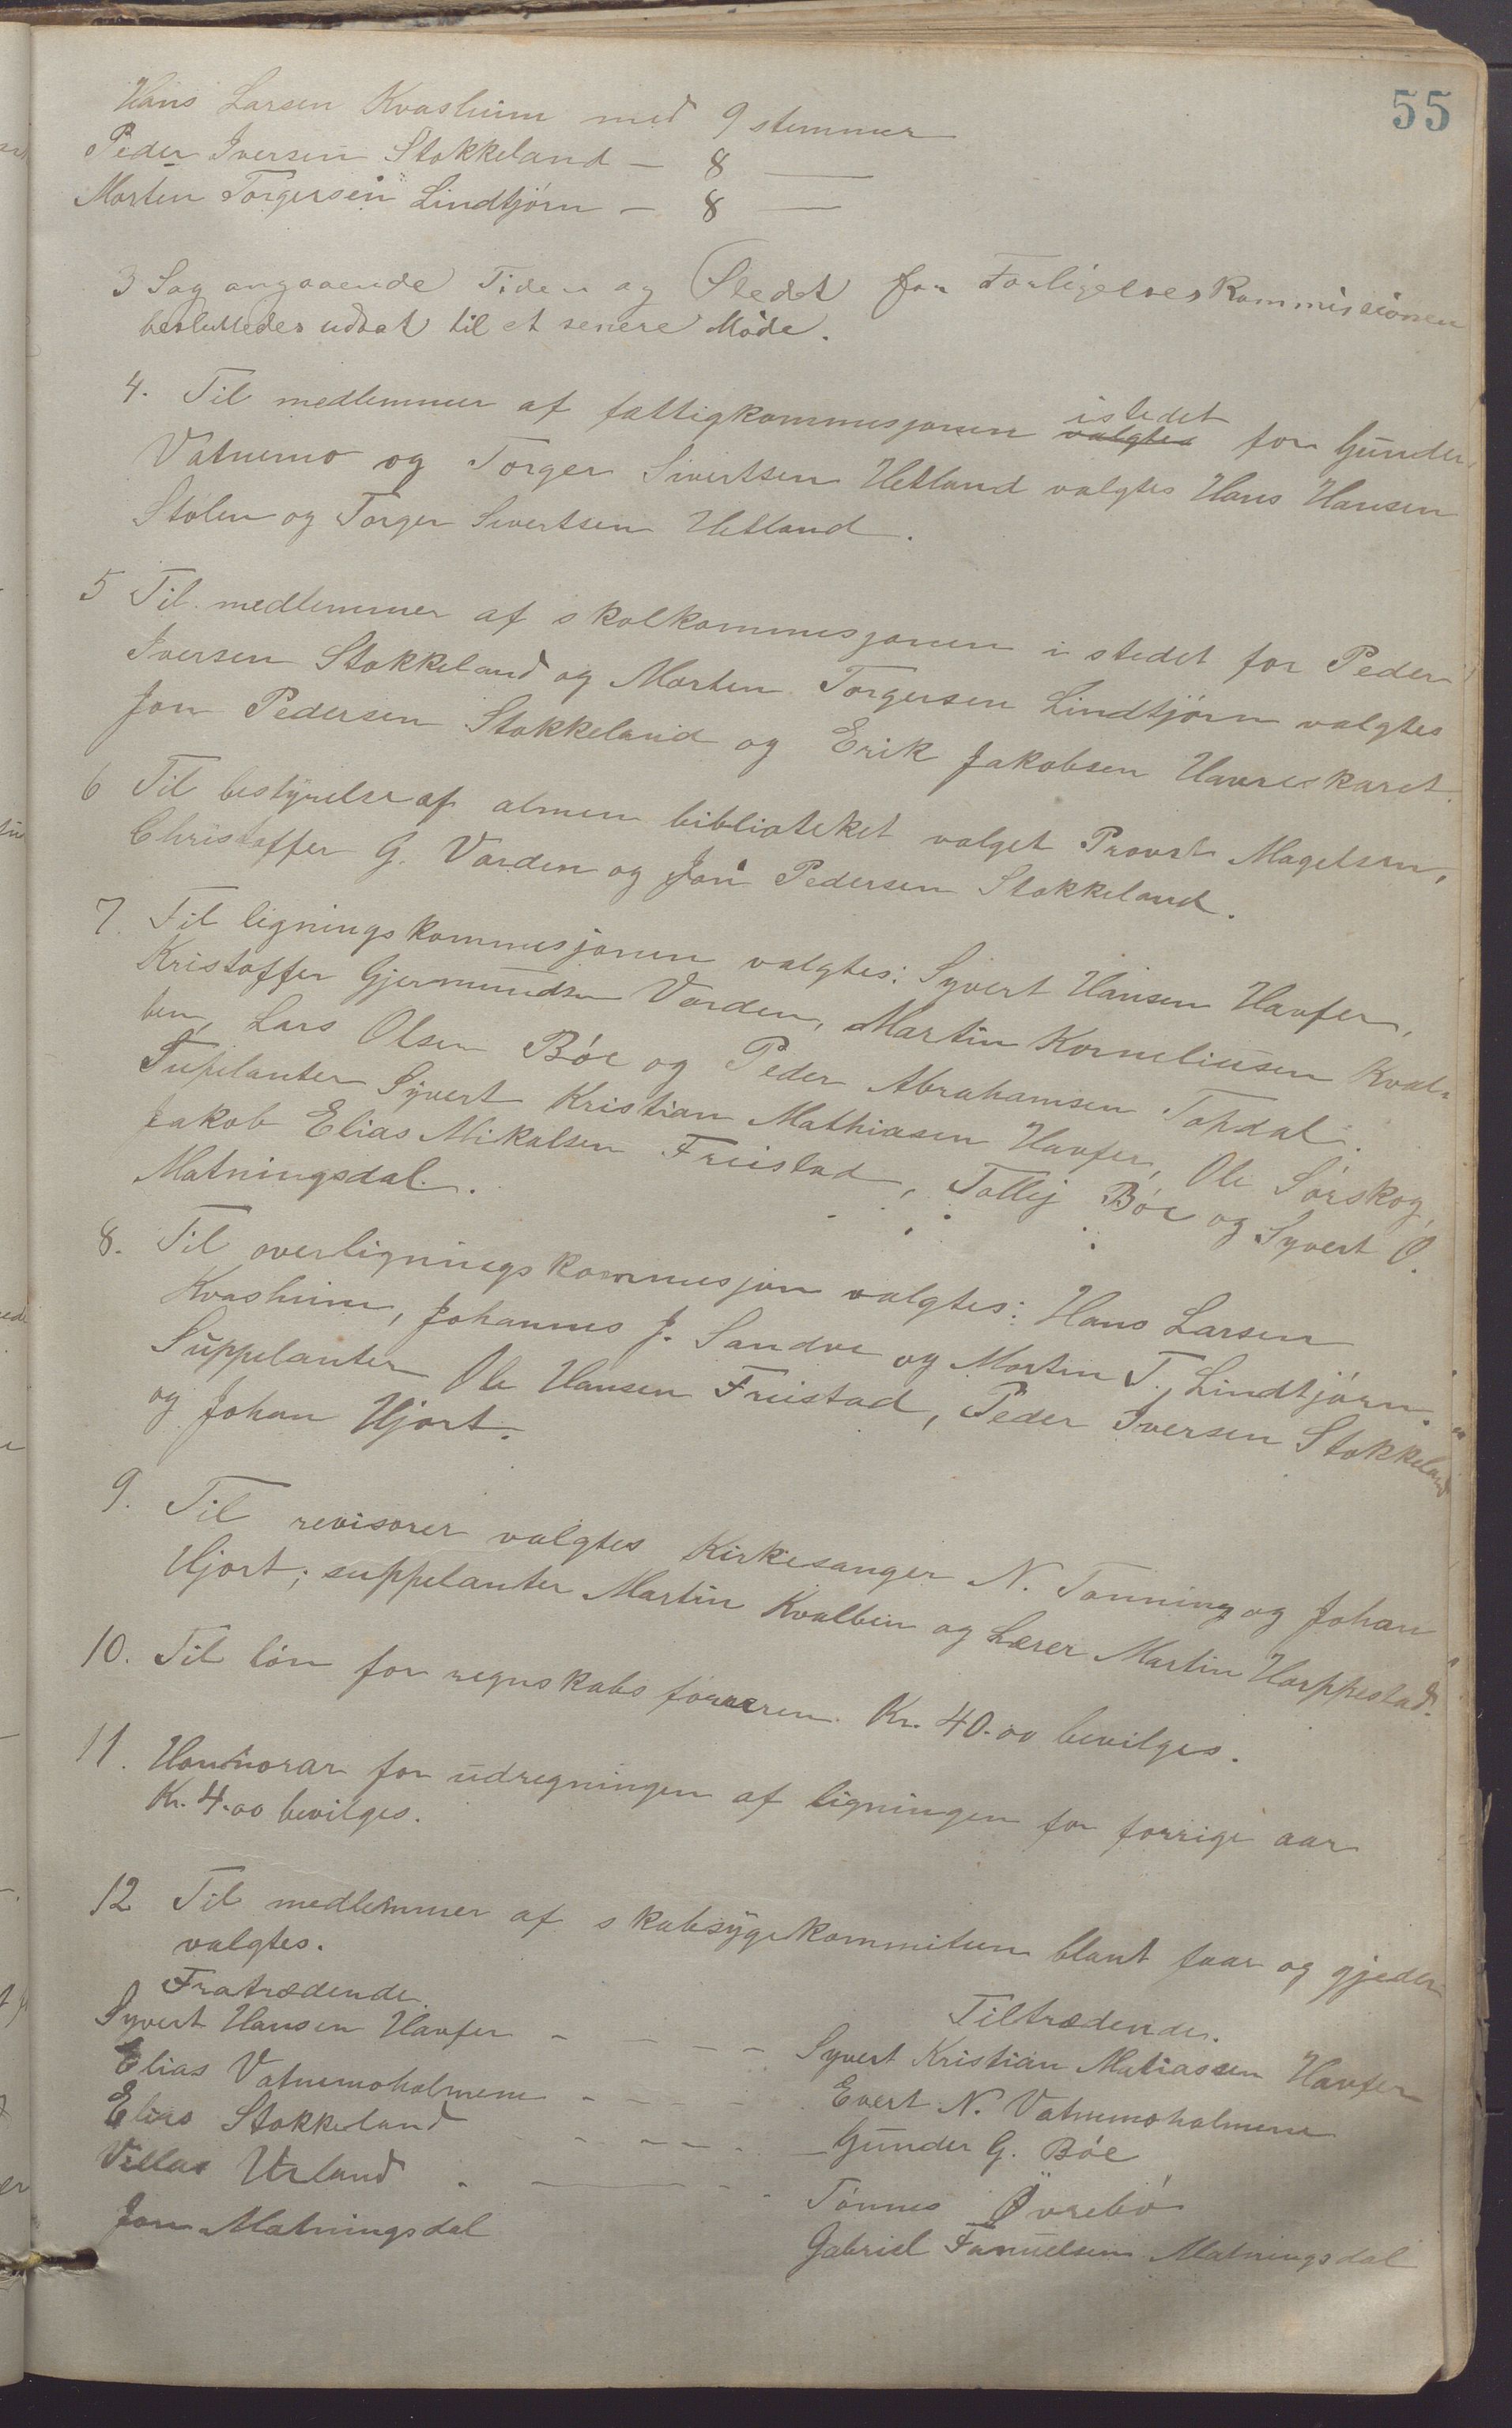 55
Hans Larsen Kvasheim med 9 stemmer
Peder Iversen Stokkeland — 8 —
Morten Torgersen Lindtjørn — 8 —
3 Sag angaaende Tiden og Stedet for Forligelseskommissionen
besluttedes udsat til et senere Møde.
4. Til medlemmer af fattigkommisjonen valgtes istedet for Gunder
Vatnemo og Torger Sivertsen Hetland valgtes Hans Hansen
Stølen og Torger Sivertsen Hetland.
5 Til medlemmer af skolkommisjonen i stedet for Peder
Iversen Stokkeland og Morten Torgersen Lindtjørn valgtes
Jon Pedersen Stokkeland og Erik Jakobsen Havreskaret.
6 Til bestyrelse af almen biblioteket valget Provst Magelsen,
Christoffer G. Varden og Jon Pedersen Stokkeland.
7. Til ligningskommisjonen valgtes: Syvert Hansen Haafer,
Kristoffer Gjermundsen Varden, Martin Korneliusen Kval-
ben, Lars Olsen Bøe og Peder Abrahamsen Topdal.
Suplanter Syvert Kristian Mathiasen Havfer, Ole Sørskog,
Jakob Elias Mikalsen Freistad, Tollej Bøe og Syvert O.
Matningsdal.
8. Til overligningskommisjon valgtes: Hans Larsen
Kvasheim, Johannes J. Sandve og Morten T. Lindtjørn.
Suppelanter Ole Hansen Freistad, Peder Iversen Stokkeland
og Johan Hjort.
9. Til revisorer valgtes Kirkesanger N. Tonning og Johan
Hjort; suppelanter Martin Kvalben og Lærer Martin Harppestad.
10. Til løn for regnskabsføreren Kr. 40.00 bevilges.
11. Honnorar for udregningen af ligningen for forrige aar
Kr. 4.00 bevilges.
12 Til medlemmer af skabsygekommiteen blant faar og gjeder
valgtes.
Fratrædende Tiltrædende.
Syvert Hansen Havfer - — — — Syvert Kristian Matiassen Havfer
Elias Vatnemoholmene - — — - Evert N. Vatnemoholmene
Elias Stokkeland - — — - — Gunder G. Bøe
Villas Urland - — — - - Tønnes Øvrebø
Jon Matningsdal Gabriel Fanuelsen Matningsdal